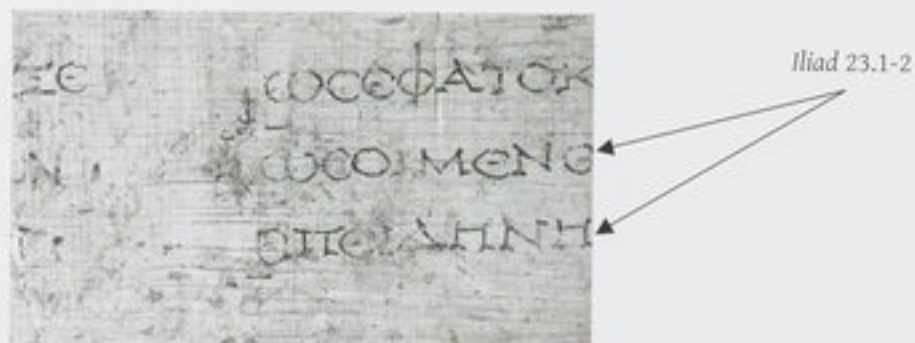 ΞΕ ωϲεφΑΤΟΚ
Ν ωϲΟΙΜΕΝΕ
ΕΠΕΙΔΗΝΗ
Iliad 23.1-2